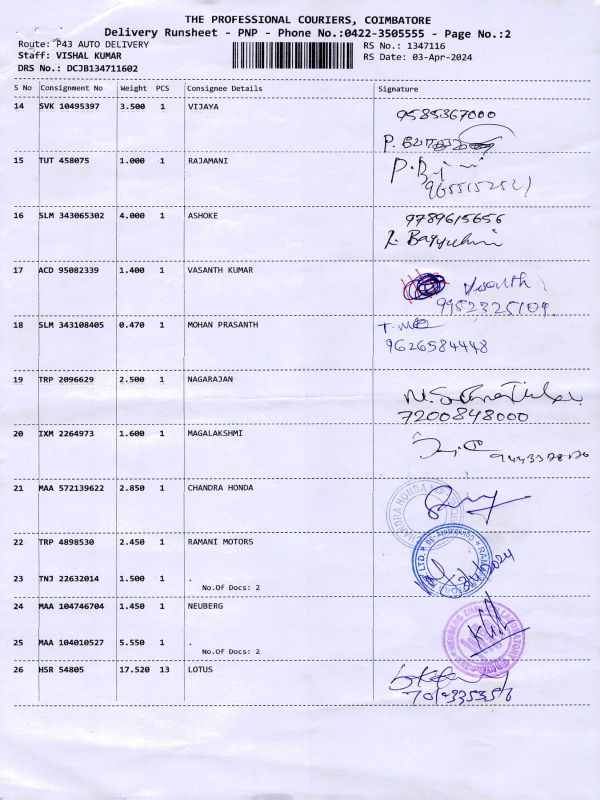 THE PROFESSIONAL COURIERS, COIMBATORE
Delivery Runsheet - PNP - Phone No.:0422-3505555 - Page No.:2
Route: P43 AUTO DELIVERY RS No.: 1347116
Staff: VISHAL KUMAR RS Date: 03-Apr-2024
DRS No.: DCJB134711602
S No Consignment No Weight PCS Consignee Details Signature
14 SVK 10495397 3.500 1 VIJAYA
9585367000
P.
15 TUT 458075 1.000 1 RAJAMANI
16 SLM 343065302 4.000 1 ASHOKE
9789615656
17 ACD 95082339 1.400 1 VASANTH KUMAR
18 SLM 343108405 0.470 1 MOHAN PRASANTH
9626584448
19 TRP 2096629 2.500 1 NAGARAJAN
7200848000
20 IXM 2264973 1.600 1 MAGALAKSHMI
21 MAA 572139622 2.850 1 CHANDRA HONDA
22 TRP 4898530 2.450 1 RAMANI MOTORS
23 TNJ 22632014 1.500 1 .
No.Of Docs: 2
24 MAA 104746704 1.450 1 NEUBERG
25 MAA 104010527 5.550 1 .
No.Of Docs: 2
26 HSR 54805 17.520 13 LOTUS